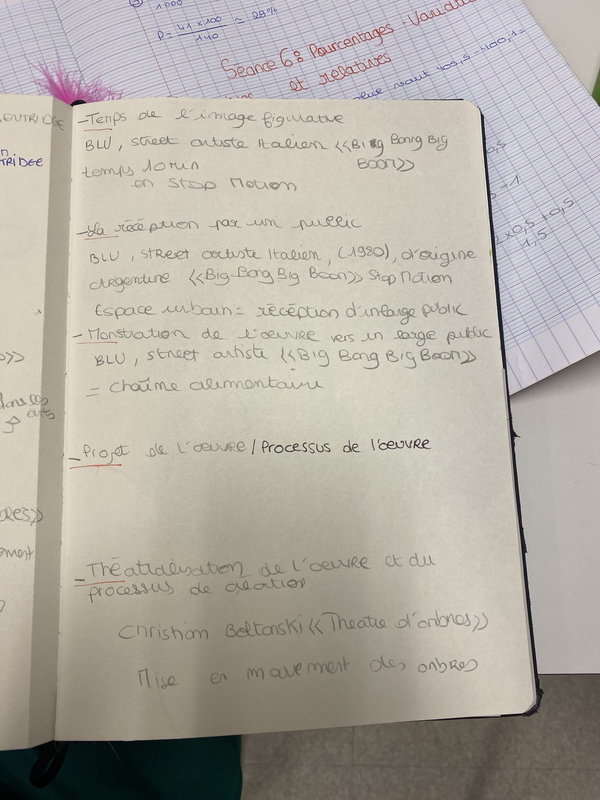 1000
P = 41 x 100 / 140 ≈ 29%
Séance 6 : Pourcentages - Variation
et relatives
ENTRIDGE
TRIDGE
- Temps de l'image figurative
BLU, street artiste Italien <<Big Bang Big
Boon>>
temps 10 min
en Stop Motion
- La récéption par un public
BLU, street artiste Italien, (1980), d'origine
Argentine <<Big Bang Big Boon>> Stop Motion
Espace urbain = récéption d'un large public
- Monstration de l'oeuvre vers un large public
BLU, street artiste <<Big Bang Big Boon>>
= chaîme alimentaire
- Projet de l'oeuvre / Processus de l'oeuvre
- Théatralisation de l'oeuvre et du
processus de création
Christian Boltanski <<Theatre d'ombres>>
Mise en mouvement des onbres